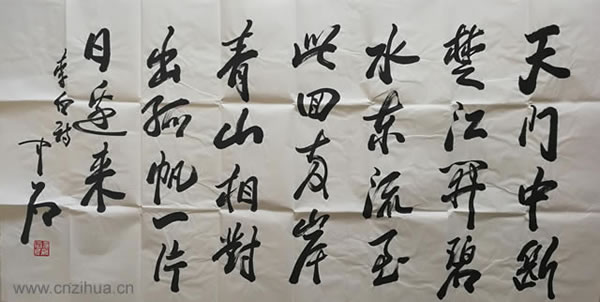 天门中断
楚江開碧
水東流至
此回两岸
青山相對
出孤帆一片
日边来
李白詩
中石
www.cnzihua.cn